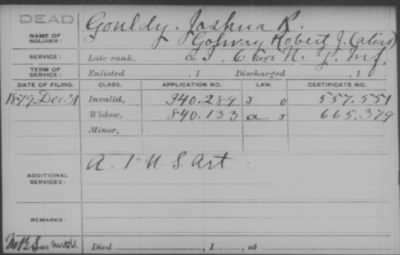 DEAD
NAME OF SOLDIER: Gouldy, Joshua R.
Robert J. (alias)
SERVICE: Late rank, N. Y. Inf.
TERM OF SERVICE: Enlisted , 1 Discharged , 1
DATE OF FILING. CLASS. APPLICATION NO. LAW. CERTIFICATE NO.
1879, Dec. 31 Invalid, 340.289 557.551
Widow, 840.133 665.379
Minor,
ADDITIONAL SERVICES: A. 1 U.S. Art.
REMARKS:
Died , 1 , at